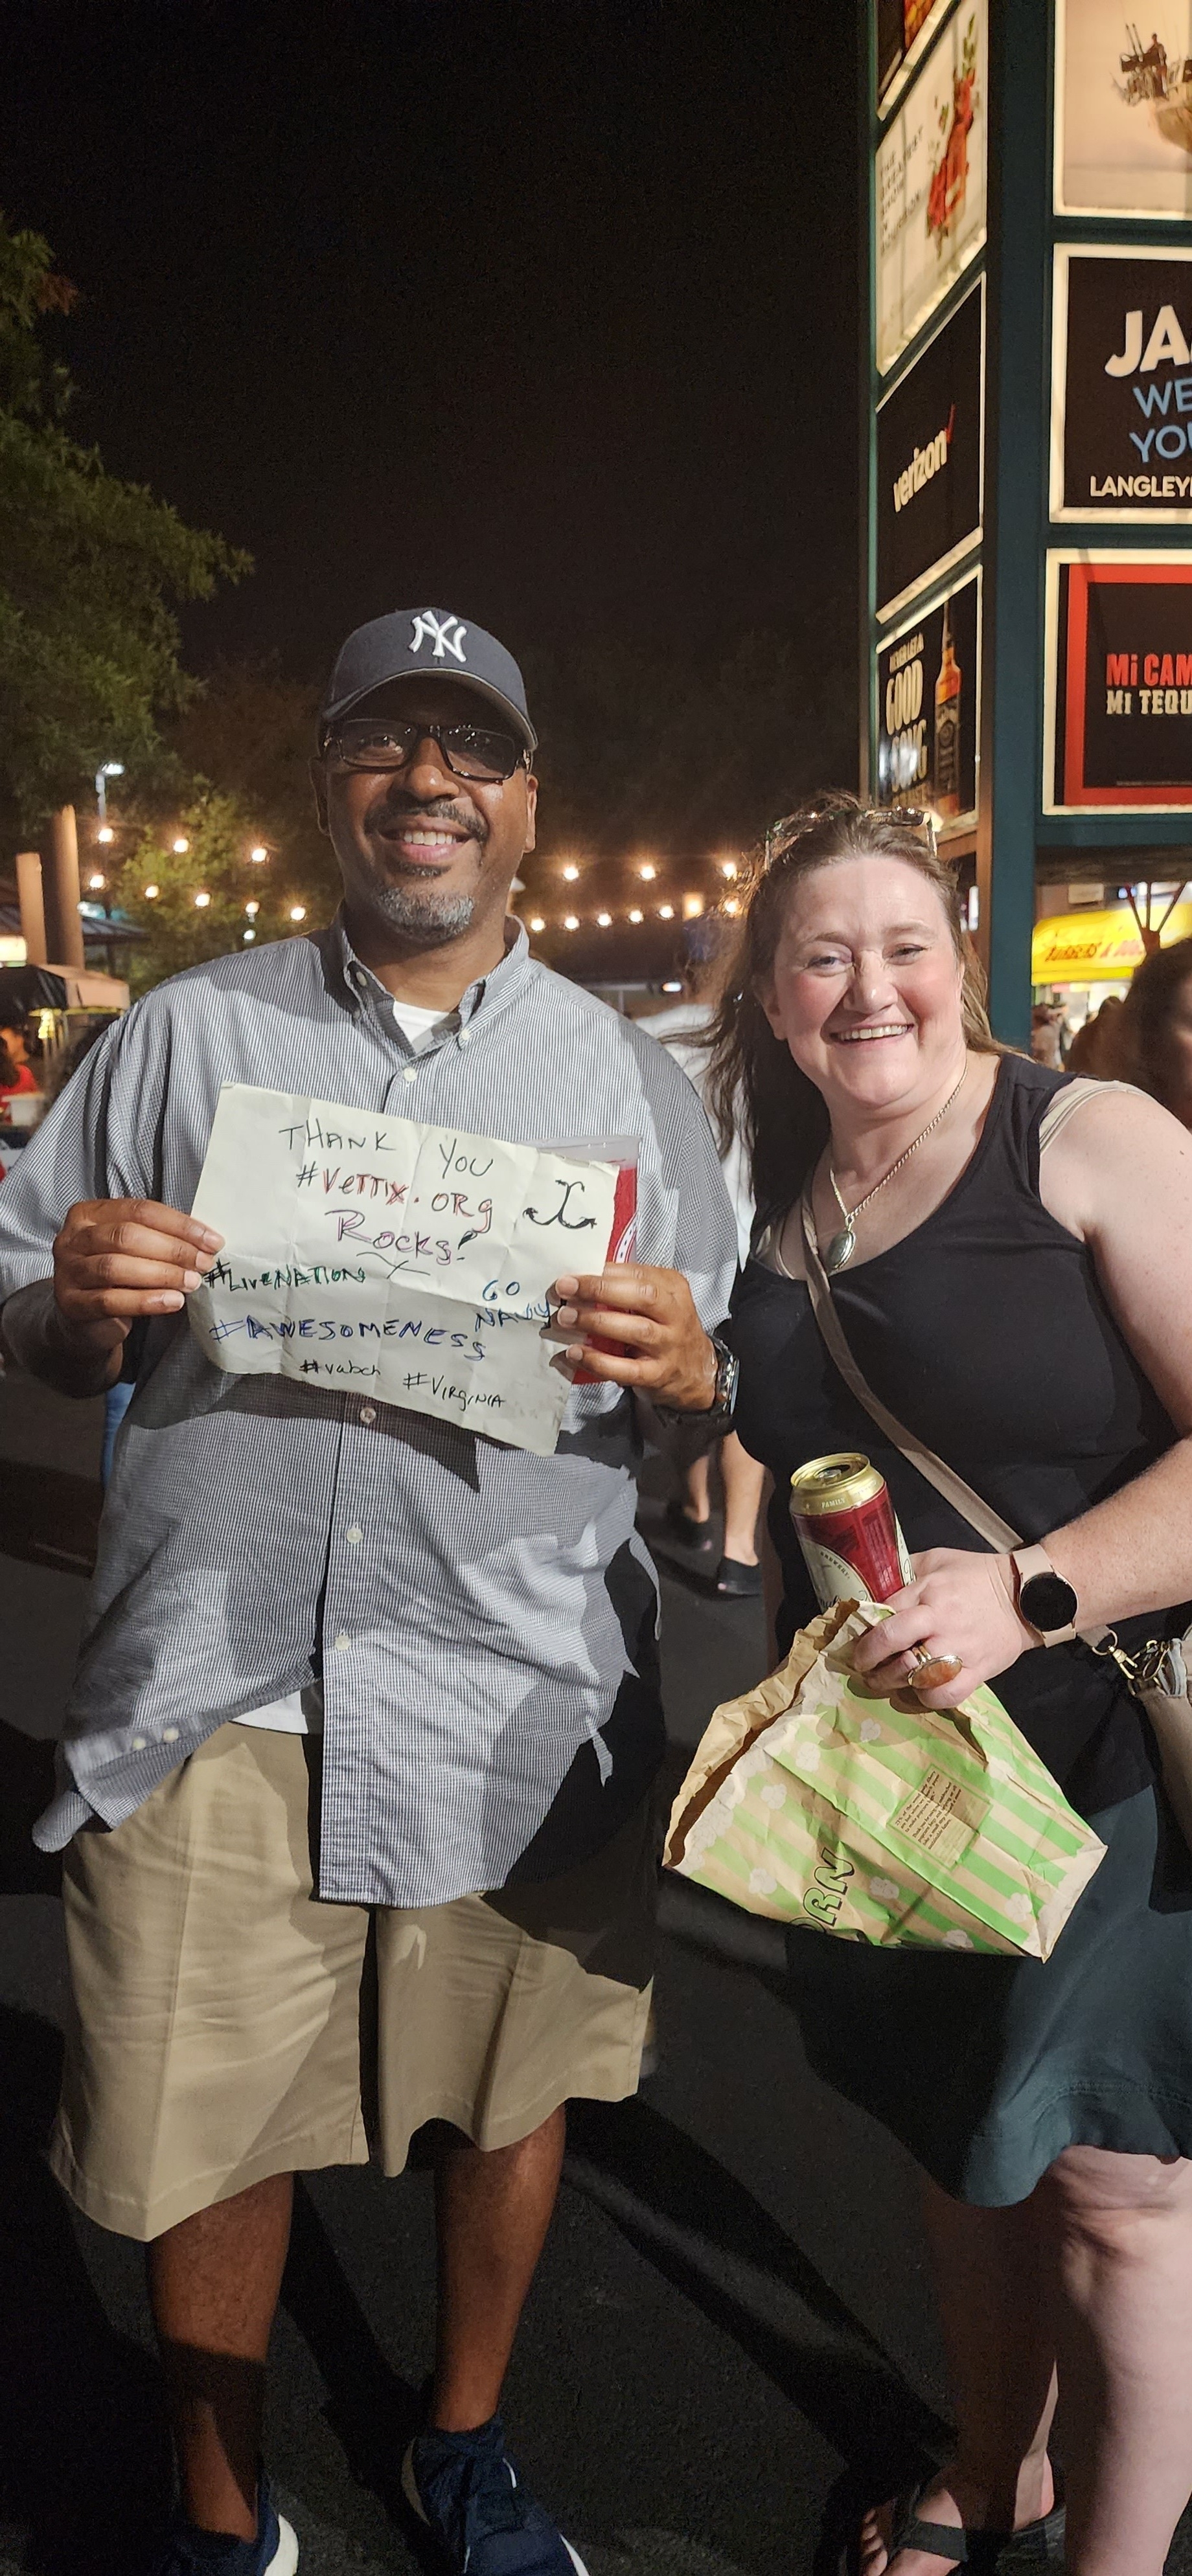 JA
WE
YOU
LANGLEY
verizon
GOOD
SONG
Mi CAM
Mi TEQU
NY
BURGERS &
THANK YOU
#VETTIX.ORG
Rocks!
#LIVENATION
GO
NAVY
#AWESOMENESS
#vabch #VIRGINIA
FAMILY
ORN